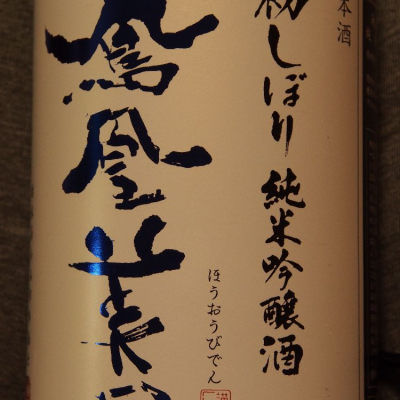 本酒
初しぼり 純米吟醸酒
鳳凰美田
ほうおうびでん